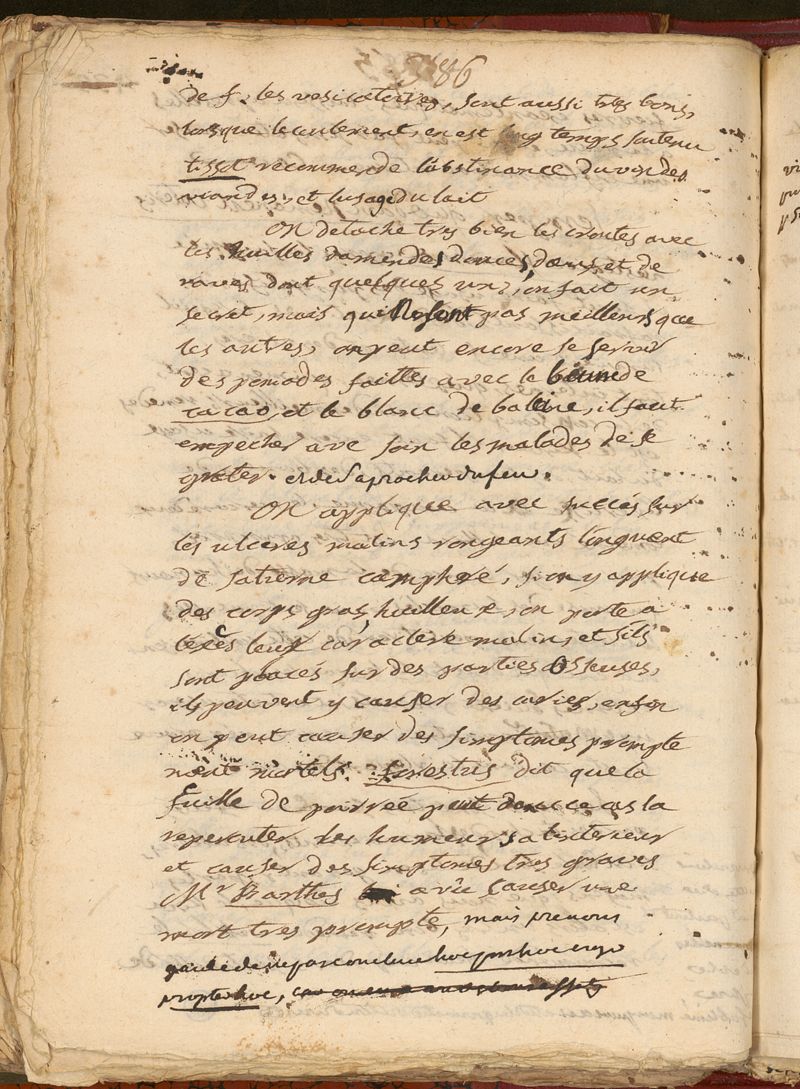 386
de f. les vesicatoires, sont aussi tres bons,
lorsque lecoulement, en est long temps soutenu
tissot recommende labstinance du vin des
viandes, et lusage du lait
On detache tres bien les croutes avec
les huilles damendes douces doeufs et de
raves dont quelques uns, en font un
secret, mais qui ne sont pas meilleurs que
les autres, on peut encore se servir
des pomades faittes avec le beurre de
cacao, et le blanc de baleine, il faut
empecher avec soin les malades de se
grater. et de saprocher du feu.
On applique avec succés sur
les ulceres malins rongeants longuent
de saturne camphré, si on y applique
des corps gras, huilleux, on porte a
lexcés leur caractere malin, et sils
sont placés sur des parties osseuses,
ils peuvent y causer des caries, enfin
on peut causer des simptomes prompte
ment mortels. forestus dit que la
feuille de poirrée peut dans ce cas la
repercuter les humeurs a linterieur
et causer des simptomes tres graves
Mr Barthes a vû causer une
mort tres prompte, mais prenons
garde de ne pas conclure hoc post hoc ergo
propter hoc,